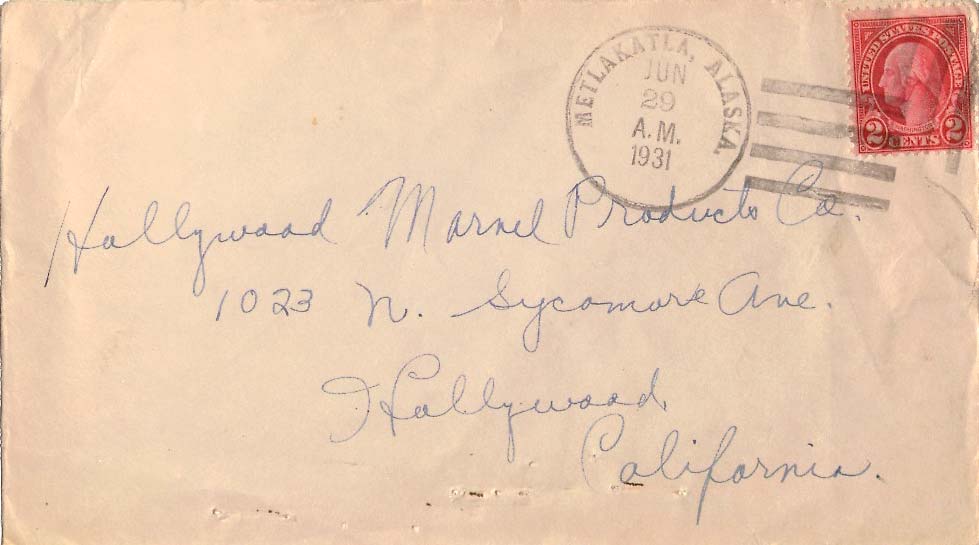 METLAKATLA, ALASKA.
JUN
29
A.M.
1931
UNITED STATES POSTAGE
WASHINGTON
2 CENTS 2
Hollywood Marvel Products Co.
1023 N. Sycamore Ave.
Hollywood
California.